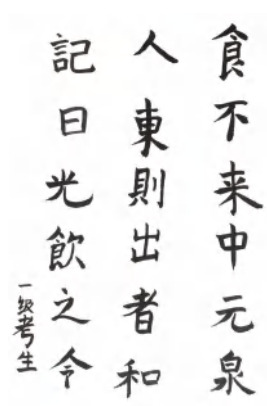 食不来中元泉
人東則出者和
記日光飲之令
一级考生